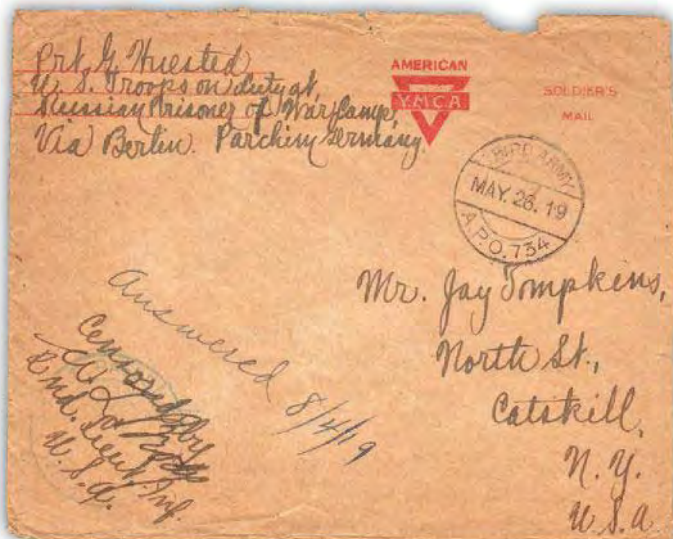 Prt. G. Huested
U. S. Troops on duty at,
Russian Prisoner of War Camp,
Via Berlin. Parchim Germany.
AMERICAN
Y.M.C.A
SOLDIER'S
MAIL
THIRD ARMY
MAY. 26. 19
A.P.O. 734
Mr. Jay Tompkins,
North St.,
Catskill,
N. Y.
U. S. A
Answered 8/4/19
Censored by
2nd. Lieut. Inf.
U. S. A.